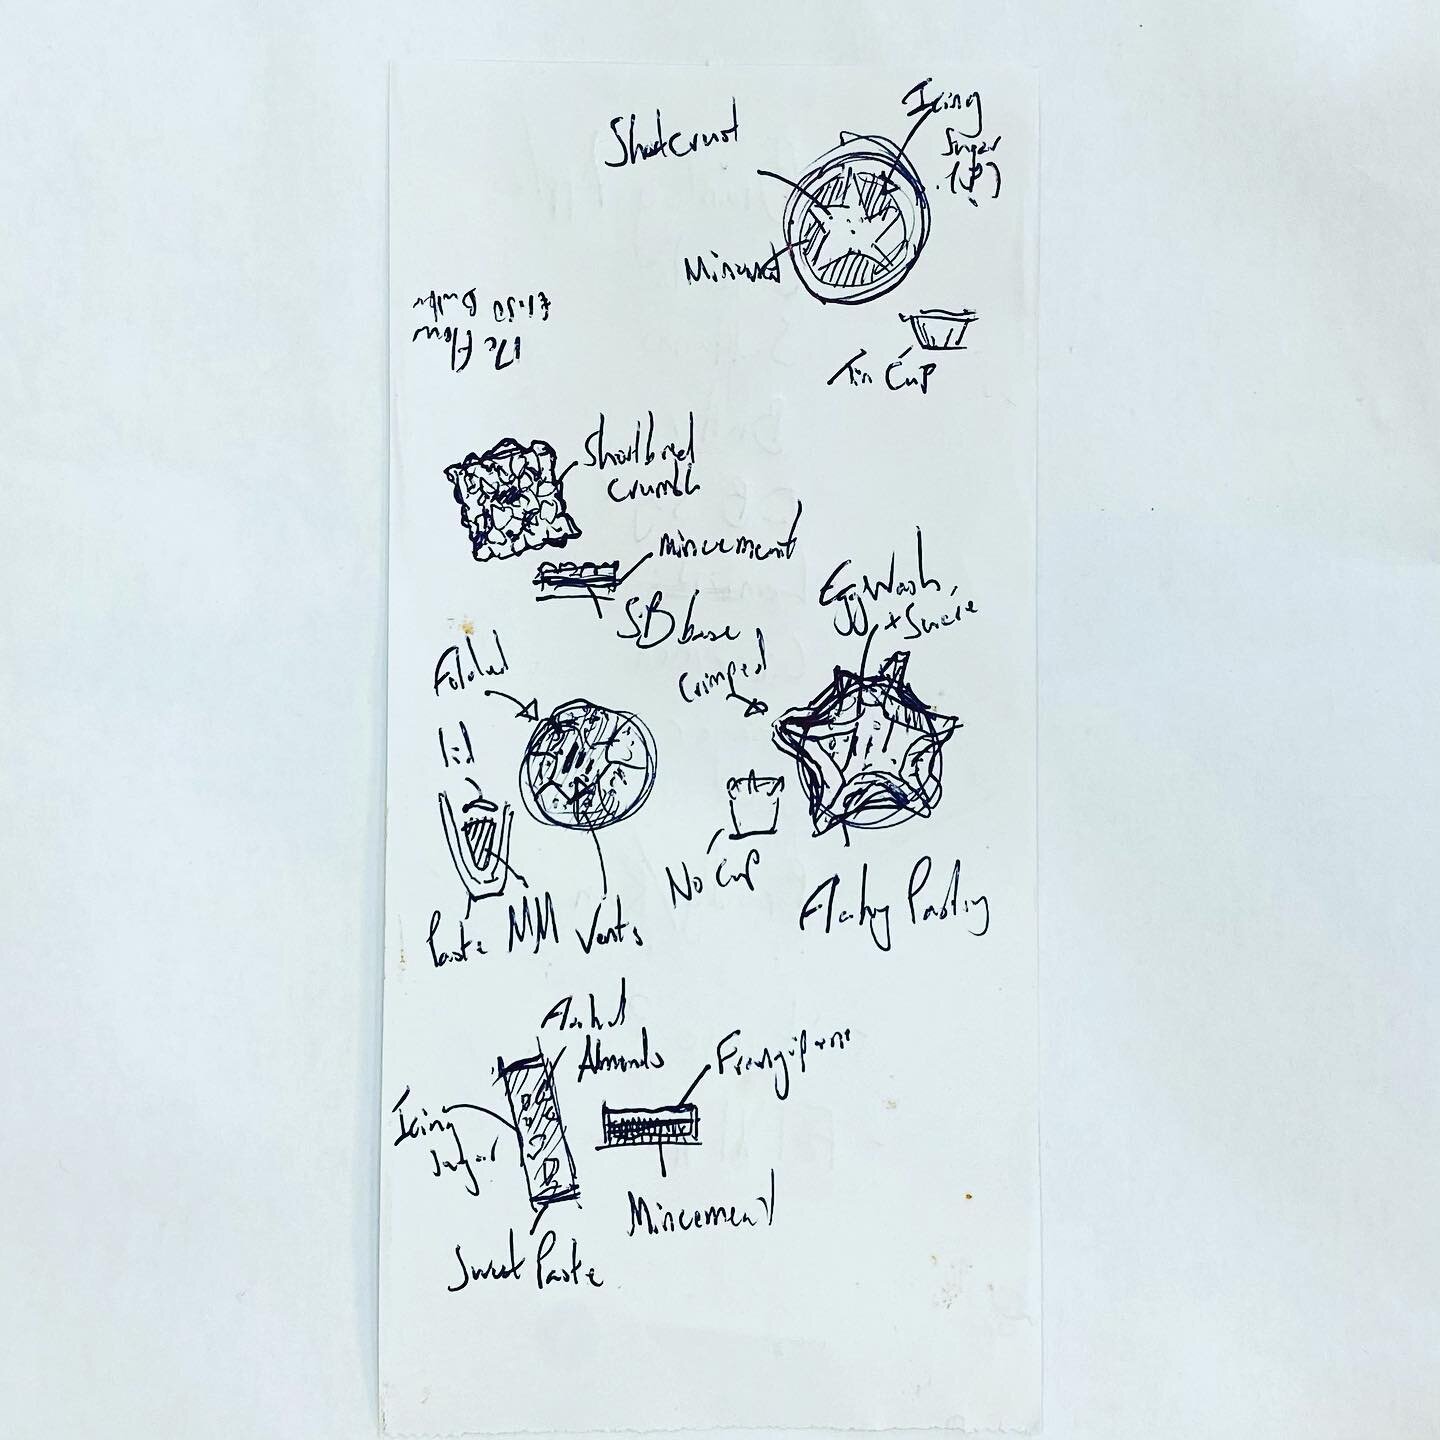 Icing
Sugar
(?)
Shortcrust
Mincemeat
Tin Cup
17c Flour
£1.50 Butter
Shortbred
Crumble
mincemeat
SB base
Egg Wash
+ Sucre
Folded
Crimped
lid
No Cup
Paste MM Vents
Flakey Pastry
Flaked
Almonds
Frangipane
Icing
Sugar
Mincemeat
Sweet Paste